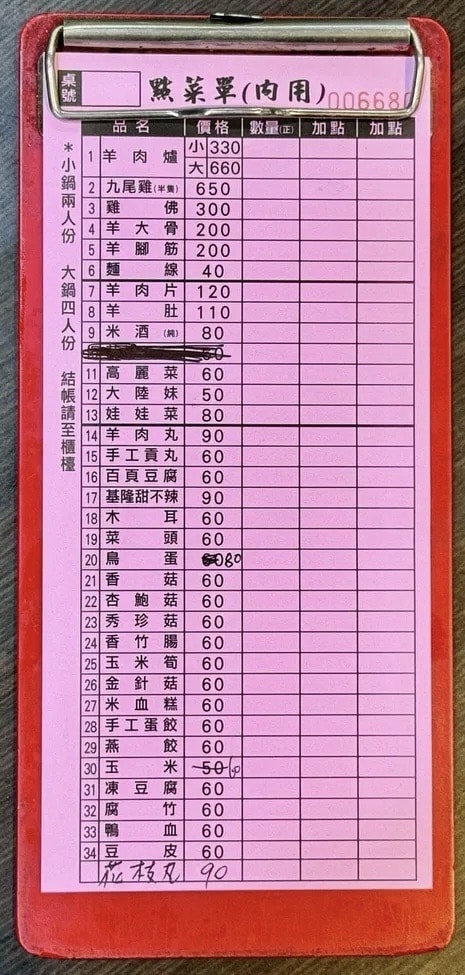 桌號
點菜單(內用)
006680
＊小鍋兩人份 大鍋四人份 結帳請至櫃檯
品名 價格 數量(正) 加點 加點
1 羊肉爐 小 330
大 660
2 九尾雞(半隻) 650
3 雞佛 300
4 羊大骨 200
5 羊腳筋 200
6 麵線 40
7 羊肉片 120
8 羊肚 110
9 米酒(純) 80
11 高麗菜 60
12 大陸妹 50
13 娃娃菜 80
14 羊肉丸 90
15 手工貢丸 60
16 百頁豆腐 60
17 基隆甜不辣 90
18 木耳 60
19 菜頭 60
20 鳥蛋 80
21 香菇 60
22 杏鮑菇 60
23 秀珍菇 60
24 香竹腸 60
25 玉米筍 60
26 金針菇 60
27 米血糕 60
28 手工蛋餃 60
29 燕餃 60
30 玉米 50 60
31 凍豆腐 60
32 腐竹 60
33 鴨血 60
34 豆皮 60
花枝丸 90